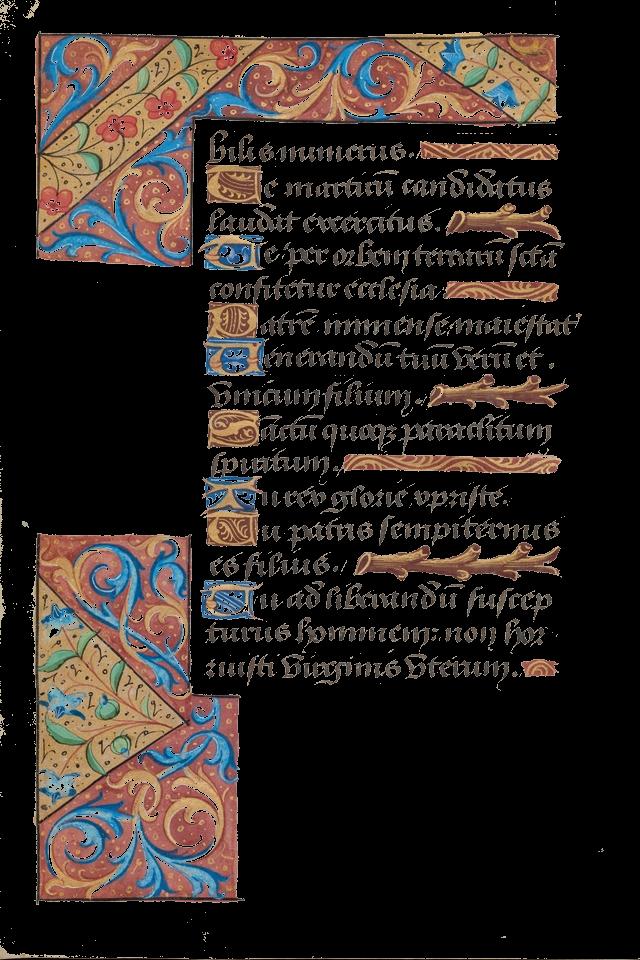 bilis numerus.
Te martirū candidatus
laudat exercitus.
Te per orbem terrarū sctā
confitetur ecclesia
Patrē immense maiestat'
Venerandū tuū verū et.
vnicum filium.
Sanctū quoqz paraclitum
spiritum.
Tu rex glorie xpriste.
Tu patris sempiternus
es filius.
Tu ad liberandū suscep
turus hominem: non hor
ruisti virginis vterum.